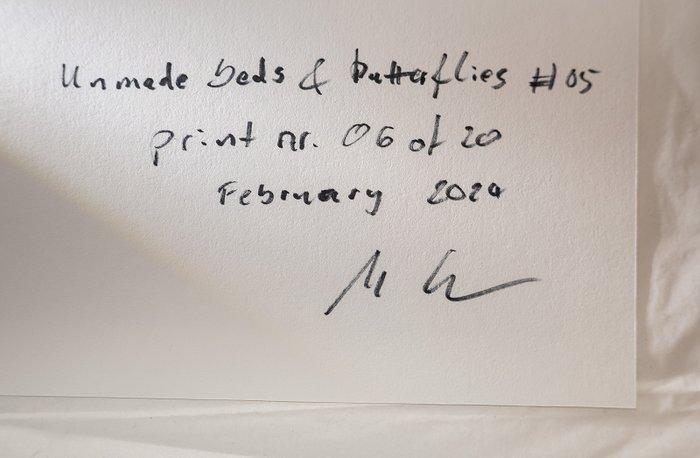 Unmade beds & butterflies #05
print nr. 06 of 20
February 2024